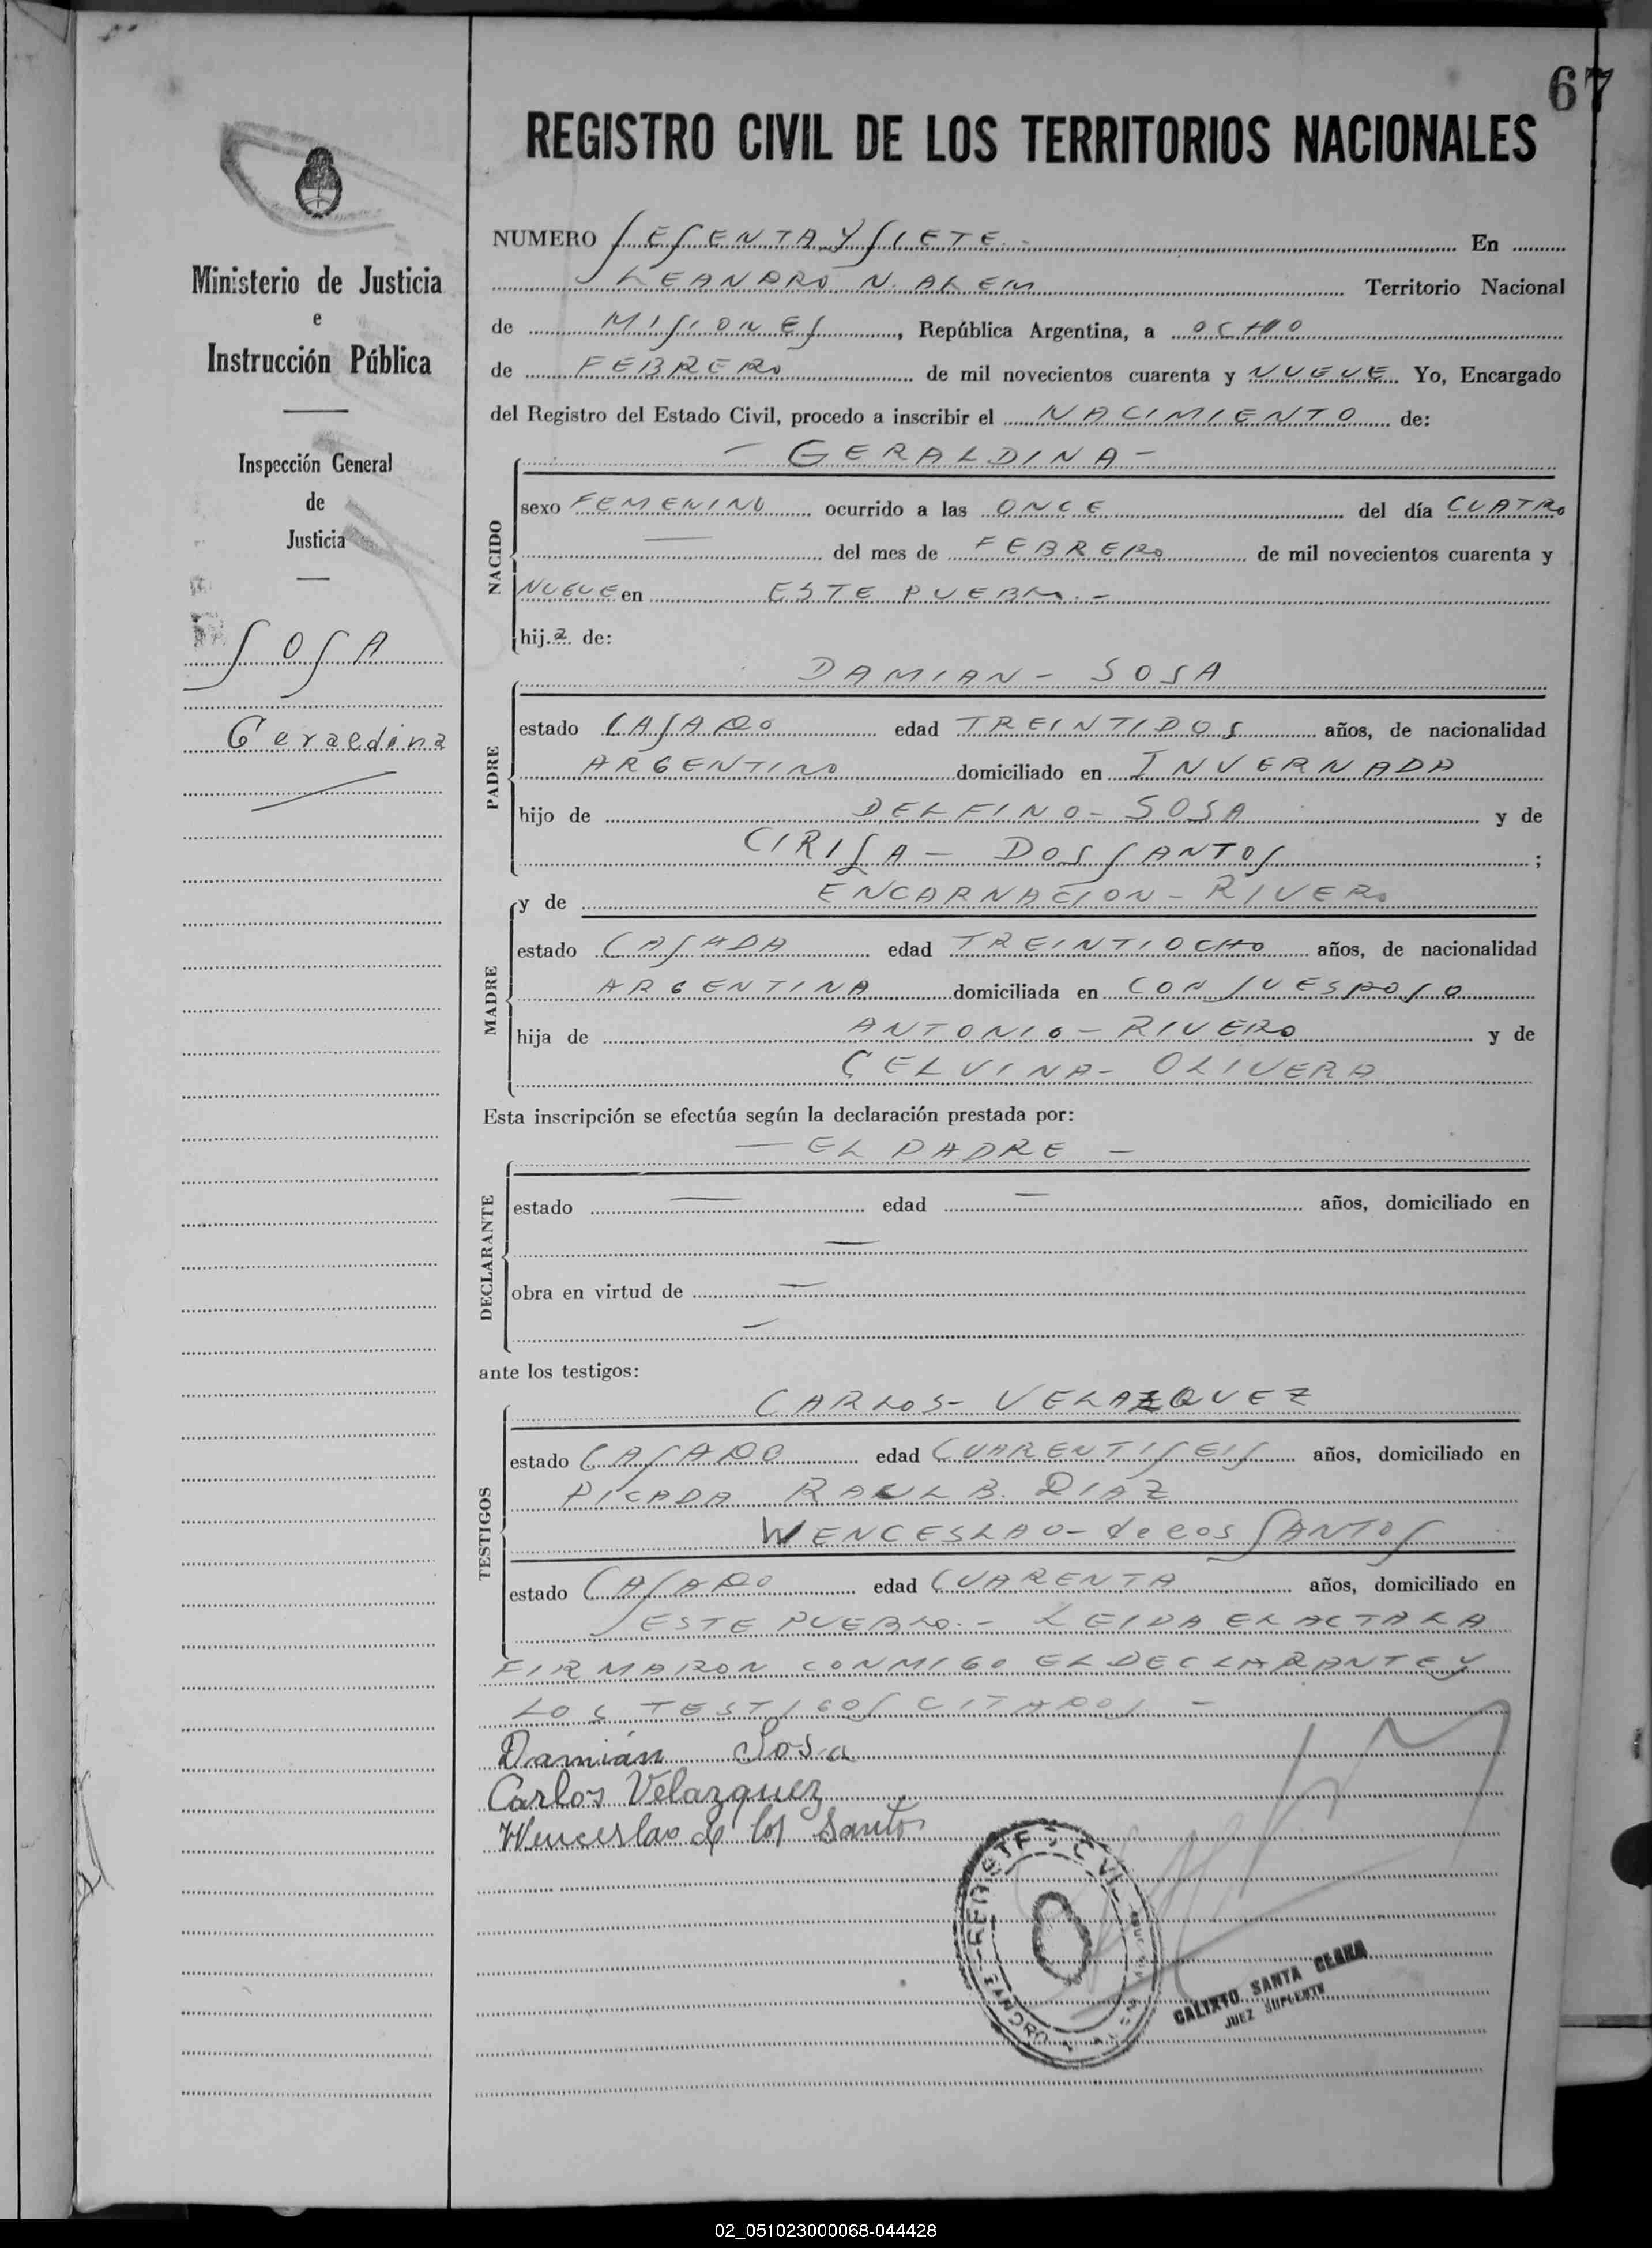 67
REGISTRO CIVIL DE LOS TERRITORIOS NACIONALES
Ministerio de Justicia
e
Instrucción Pública
Inspección General
de
Justicia
SOSA
Geraldina
NUMERO SESENTA Y SIETE.- En
LEANDRO N. ALEM Territorio Nacional
de MISIONES, República Argentina, a OCHO
de FEBRERO de mil novecientos cuarenta y NUEVE Yo, Encargado
del Registro del Estado Civil, procedo a inscribir el NACIMIENTO de:
- GERALDINA -
NACIDO
sexo FEMENINO ocurrido a las ONCE del día CUATRO
— del mes de FEBRERO de mil novecientos cuarenta y
NUEVE en ESTE PUEBLO.-
hija de:
DAMIAN - SOSA
PADRE
estado CASADO edad TREINTIDOS años, de nacionalidad
ARGENTINO domiciliado en INVERNADA
hijo de DELFINO - SOSA y de
CIRILA - DOS SANTOS ;
MADRE
y de ENCARNACION - RIVERO
estado CASADA edad TREINTIOCHO años, de nacionalidad
ARGENTINA domiciliada en CON SU ESPOSO
hija de ANTONIO - RIVERO y de
CELVINA - OLIVERA
Esta inscripción se efectúa según la declaración prestada por:
— EL PADRE —
DECLARANTE
estado — edad — años, domiciliado en
—
obra en virtud de —
—
ante los testigos:
CARLOS - VELAZQUEZ
TESTIGOS
estado CASADO edad CUARENTISEIS años, domiciliado en
PICADA RAUL B. DIAZ
WENCESLAO - de los SANTOS
estado CASADO edad CUARENTA años, domiciliado en
ESTE PUEBLO.- LEIDA EL ACTA LA
FIRMARON CONMIGO EL DECLARANTE Y
LOS TESTIGOS CITADOS -
Damián Sosa
Carlos Velazquez
Wenceslao de los Santos
CALIXTO SANTA CLARA
JUEZ SUPLENTE
02_051023000068-044428